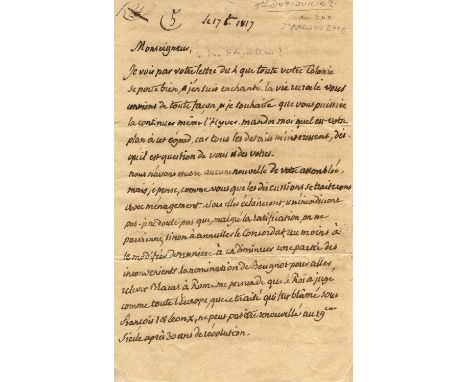 5
le 17 8bre 1817
Gl Dumouriez
au duc
d'Angoulême
Monseigneur,
Je vois par votre lettre du 4 que toute votre Colonie
se porte bien, j'en suis enchanté. la vie rurale vous
convient de toute façon, je souhaite que vous puissiez
la continuer même l'Hyver. mandez moi quel est votre
plan à cet égard, car tous les details m'interessent, dès
qu'il est question de vous et des votres.
nous n'avons encore aucune nouvelle de votre assemblée,
mais je pense, comme vous que les discussions se traiteront
avec ménagement
pas. je ne doute pas que, malgré la ratification, on ne
parvienne, sinon à annuller le Concordat au moins à
le modifier de maniere à en diminuer une partie des
inconvenients. la nomination de Beugnot pour aller
relever Blacas à Rome me persuade que le Roi a jugé
comme toute l'Europe que ce traité qui fut blâmé sous
François 1er et Leon X, ne peut pas être renouvellé au 19eme
Siecle après 30 ans de revolution.